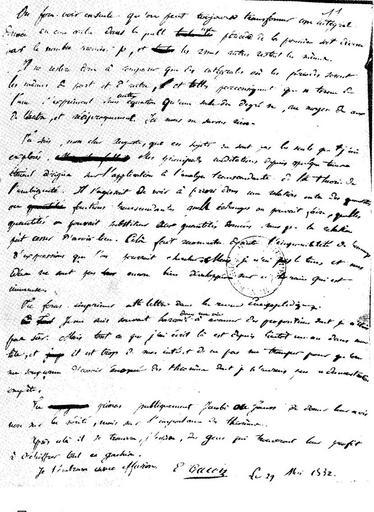 11
On fera voir ensuite qu'on peut toujours transformer une intégrale
donnée en une autre dans laquelle période de la première soit divisée
par le nombre premier p, et les autres restent les mêmes.
Il ne restera donc à comparer que des intégrales où les périodes seront
les mêmes de part et d'autre, et telles par conséquent que n termes de
l'une s'expriment sans autre équation qu'une seule du degré n, au moyen de ceux
de l'autre, et réciproquement. Ici nous ne savons rien.
Tu sais, mon cher Auguste, que ces sujets ne sont pas les seuls que j'aie
explorés. Mes principales méditations depuis quelque temps
étaient dirigées sur l'application à l'analyse transcendante de la théorie de
l'ambiguité. Il s'agissait de voir a priori dans une relation entre des quantités
ou fonctions transcendantes quels échanges on pouvait faire, quelles
quantités on pouvait substituer aux quantités données sans que la relation
put cesser d'avoir lieu. Cela fait reconnaitre l'impossibilité de beaucoup
d'expressions que l'on pourrait chercher. Mais je n'ai pas le temps, et mes
idées ne sont pas encore bien développées sur ce terrain qui est
immense.
Tu feras imprimer cette lettre dans la revue Encyclopédique.
Je me suis souvent hasardé dans ma vie à avancer des propositions dont je n'étais
pas sûr. Mais tout ce que j'ai écrit là est depuis bientôt un an dans ma
tête, et il est trop de mon intérêt de ne pas me tromper pour qu'on
me soupçonne d'avoir énoncé des théorèmes dont je n'aurais pas la démonstration
complète.
Tu prieras publiquement Jacobi ou Gauss de donner leur avis
non sur la vérité, mais sur l'importance des théorèmes.
Après cela il se trouvera, j'espère, des gens qui trouveront leur profit
à déchiffrer tout ce gachis.
Je t'embrasse avec effusion. E Galois Le 29 Mai 1832.